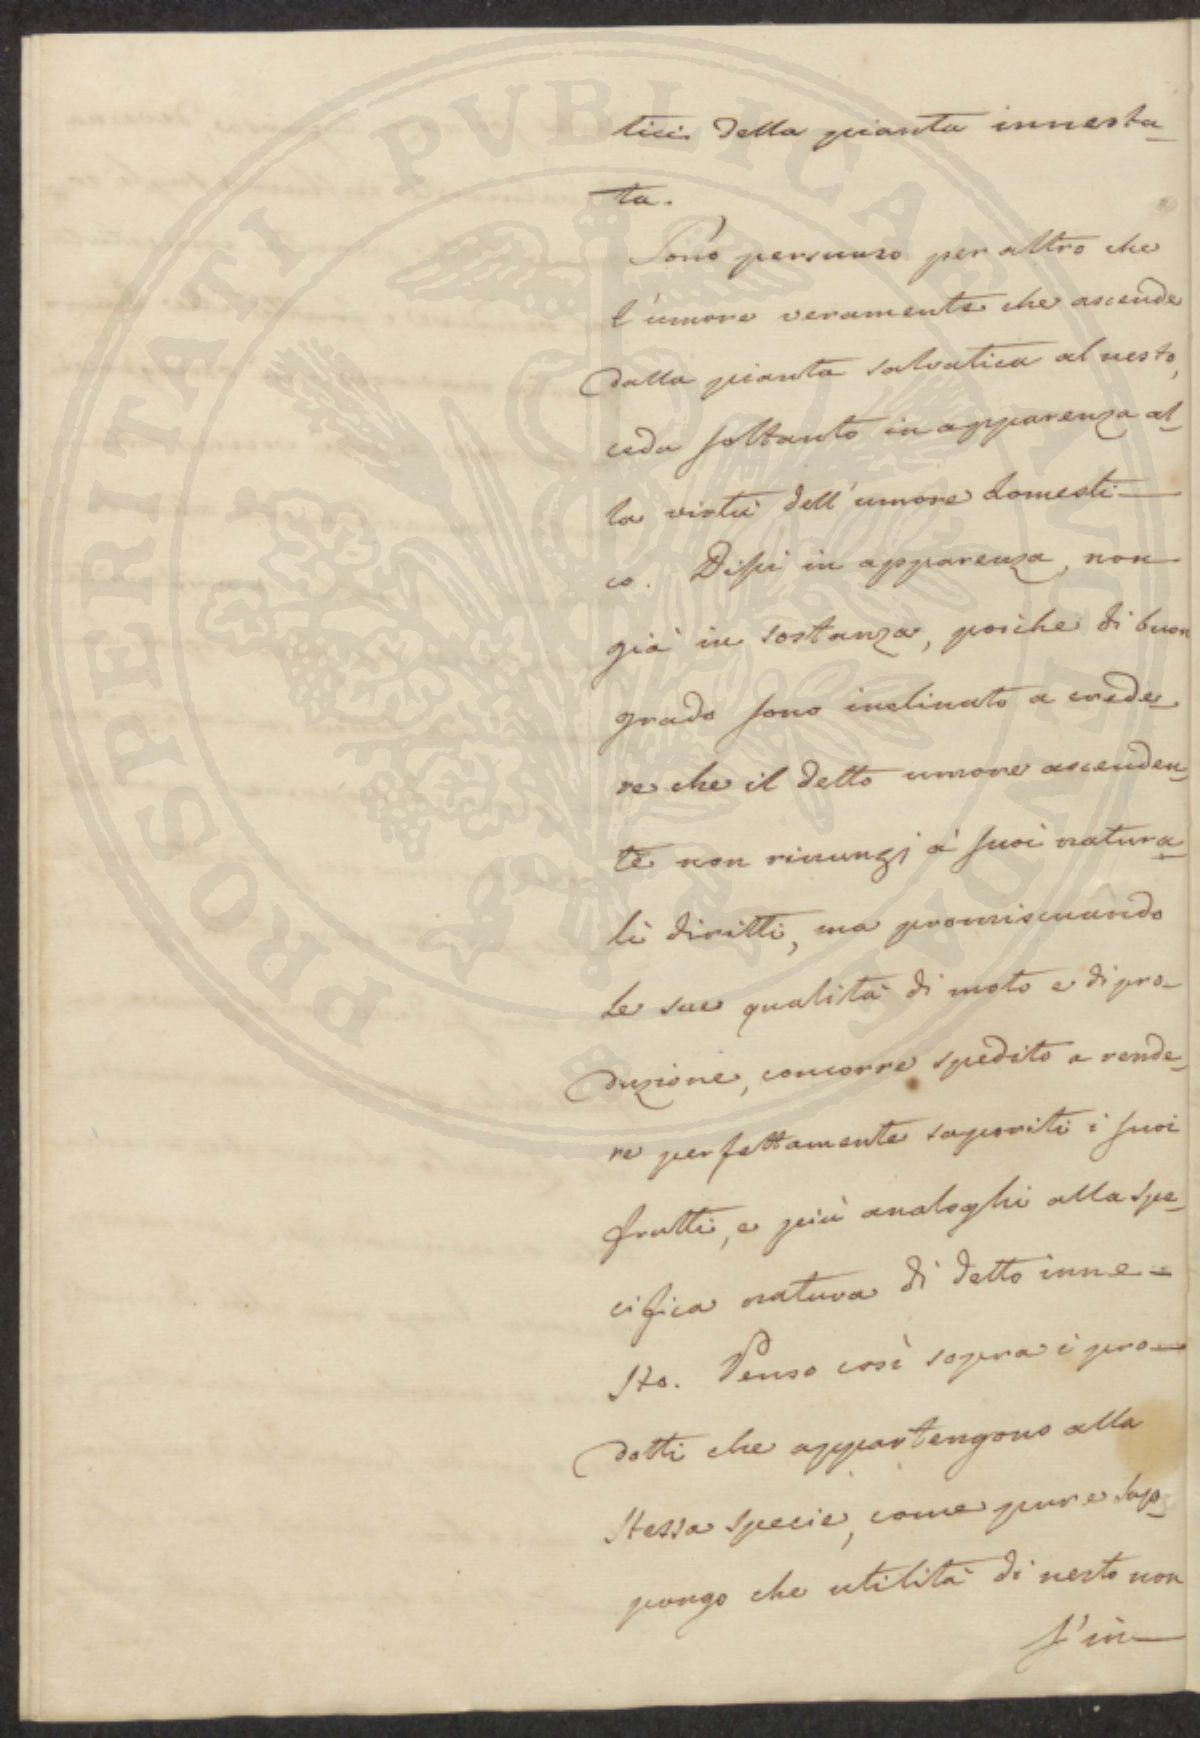 tici della pianta innesta-
ta.
Sono persuaso per altro che
l'umore veramente che ascende
dalla pianta salvatica al nesto,
ceda soltanto in apparenza al-
la virtù dell'umore domesti-
co. Dissi in apparenza, non
già in sostanza, poiche di buon
grado sono inclinato a crede-
re che il detto umore ascenden-
te non rinunzj a' suoi natura-
li diritti, ma promiscuando
le sue qualità di moto e di pro-
duzione, concorre spedito a rende-
re perfettamente saporiti i suoi
frutti, e più analoghi alla spe-
cifica natura di detto inne-
sto. Penso così sopra i pro-
dotti che appartengono alla
stessa specie, come pure sup-
pongo che utilità di nesto non
s'in-
PROSPERITATI PVBLICAE AVGENDAE